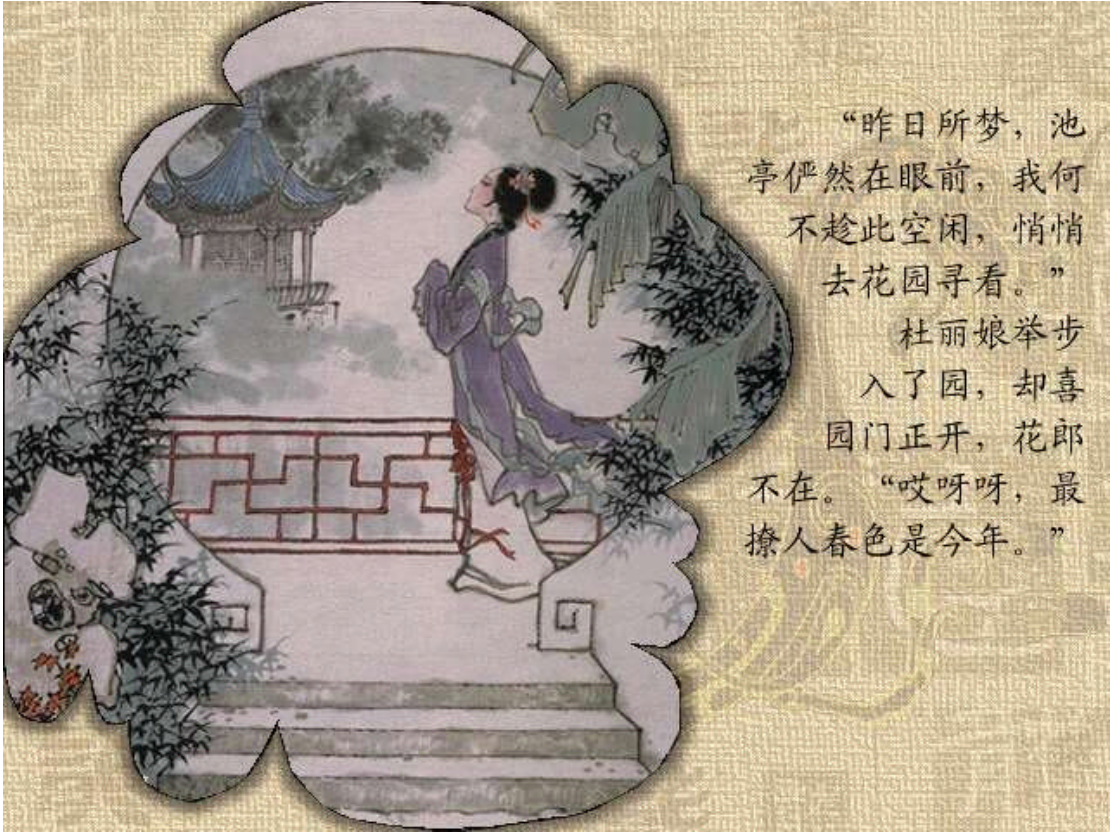 “昨日所梦，池
亭俨然在眼前，我何
不趁此空闲，悄悄
去花园寻看。”
杜丽娘举步
入了园，却喜
园门正开，花郎
不在。 “哎呀呀，最
撩人春色是今年。”